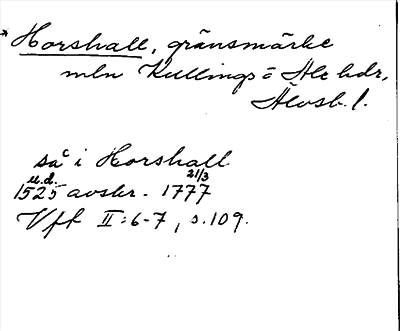 * Horshall, gränsmärke
mln Kullings o Ale hdr,
Älvsb. l.
så i Horshall
u.d. 21/3
1525 avskr. 1777
Vff II:6-7, s. 109.